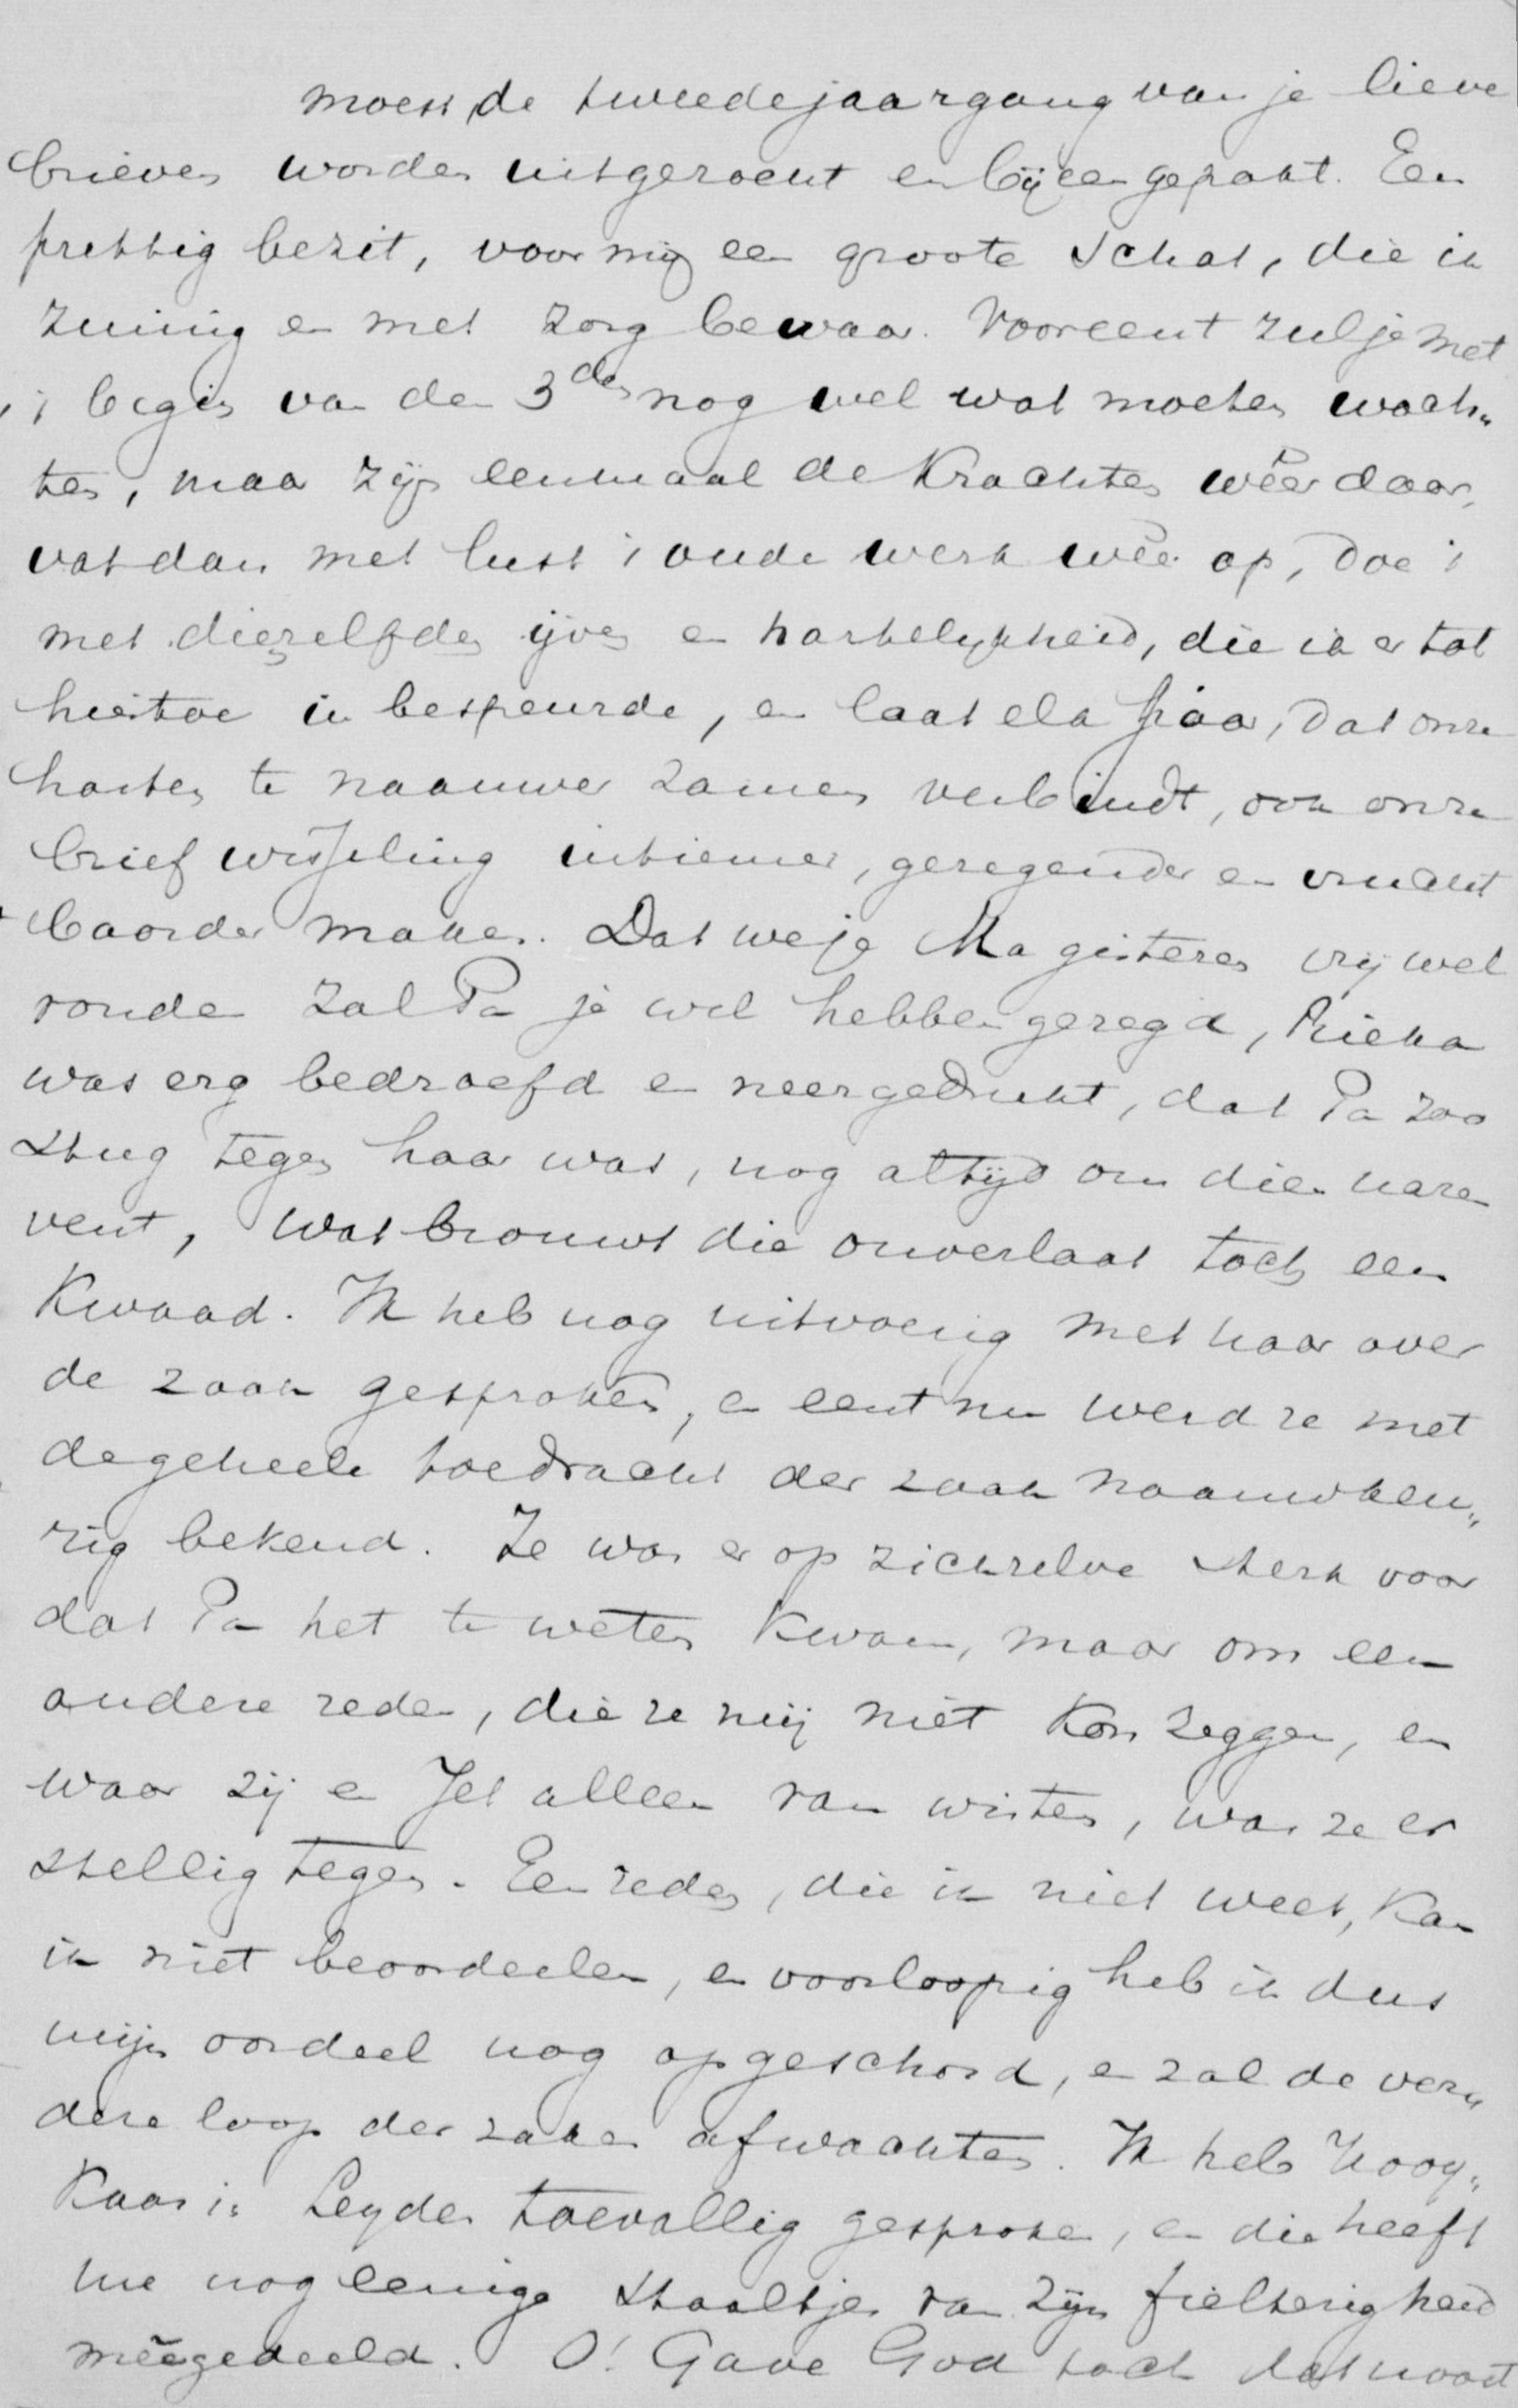 moest de tweede jaargang van je lieve
brieven worden uitgezocht en bijeengepakt. Een
prettig bezit, voor mij een groote schat, die ik
zuinig en met zorg bewaar. Vooreerst zul je met
't begin van den 3den nog wel wat moeten wach„
ten, maar zijn eenmaal de krachten wêer daar,
vat dan met lust 't oude werk wêer op, doe 't
met diezelfden ijver en hartelijkheid, die ik er tot
hiertoe in bespeurde, en laat elk jaar, dat onze
harten te naauwer zamen verbindt, ook onze
briefwisseling intiemer, gezegender en vrucht
baarder maken. Dat we je Ma gisteren vrij wel
vonden zal Pa je wel hebben gezegd, Rieka
was erg bedroefd en neergedrukt, dat Pa zoo
stug tegen haar was, nog altijd om dien naren
vent, wat brouwt die onverlaat toch een
kwaad. Ik heb nog uitvoerig met haar over
de zaak gesproken, en eerst nu werd ze met
de geheele toedracht der zaak naauwkeu„
rig bekend. Ze was er op zichzelve sterk voor
dat Pa het te weten kwam, maar om een
andere reden, die ze mij niet kon zeggen, en
waar zij en Jet alleen van wisten, was ze er
stellig tegen. Een reden, die ik niet weet, kan
ik niet beoordeelen, en voorloopig heb ik dus
mijn oordeel nog opgeschord, en zal de ver„
dere loop der zaken afwachten. Ik heb Hooy„
kaas in Leyden toevallig gesproken, en die heeft
me nog eenige staaltjes van zijn fielterigheid
mêegedeeld. O! Gave God toch dat nooit